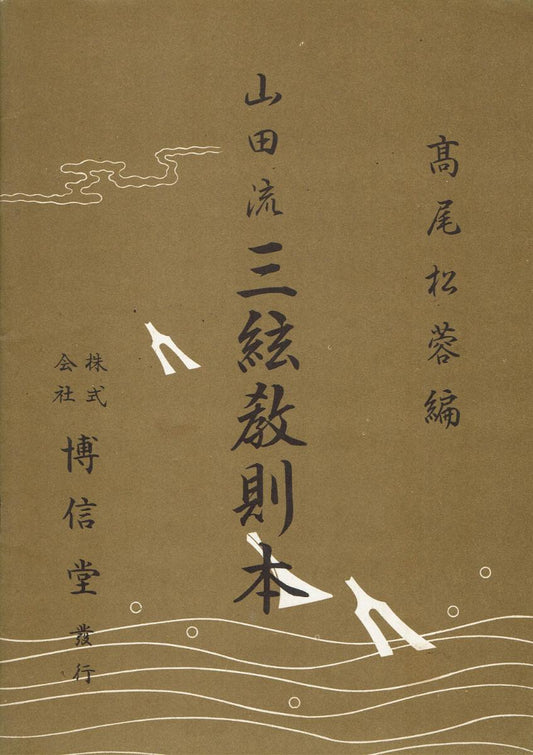 髙尾松蓉編
山田流 三絃教則本
株式会社 博信堂 發行